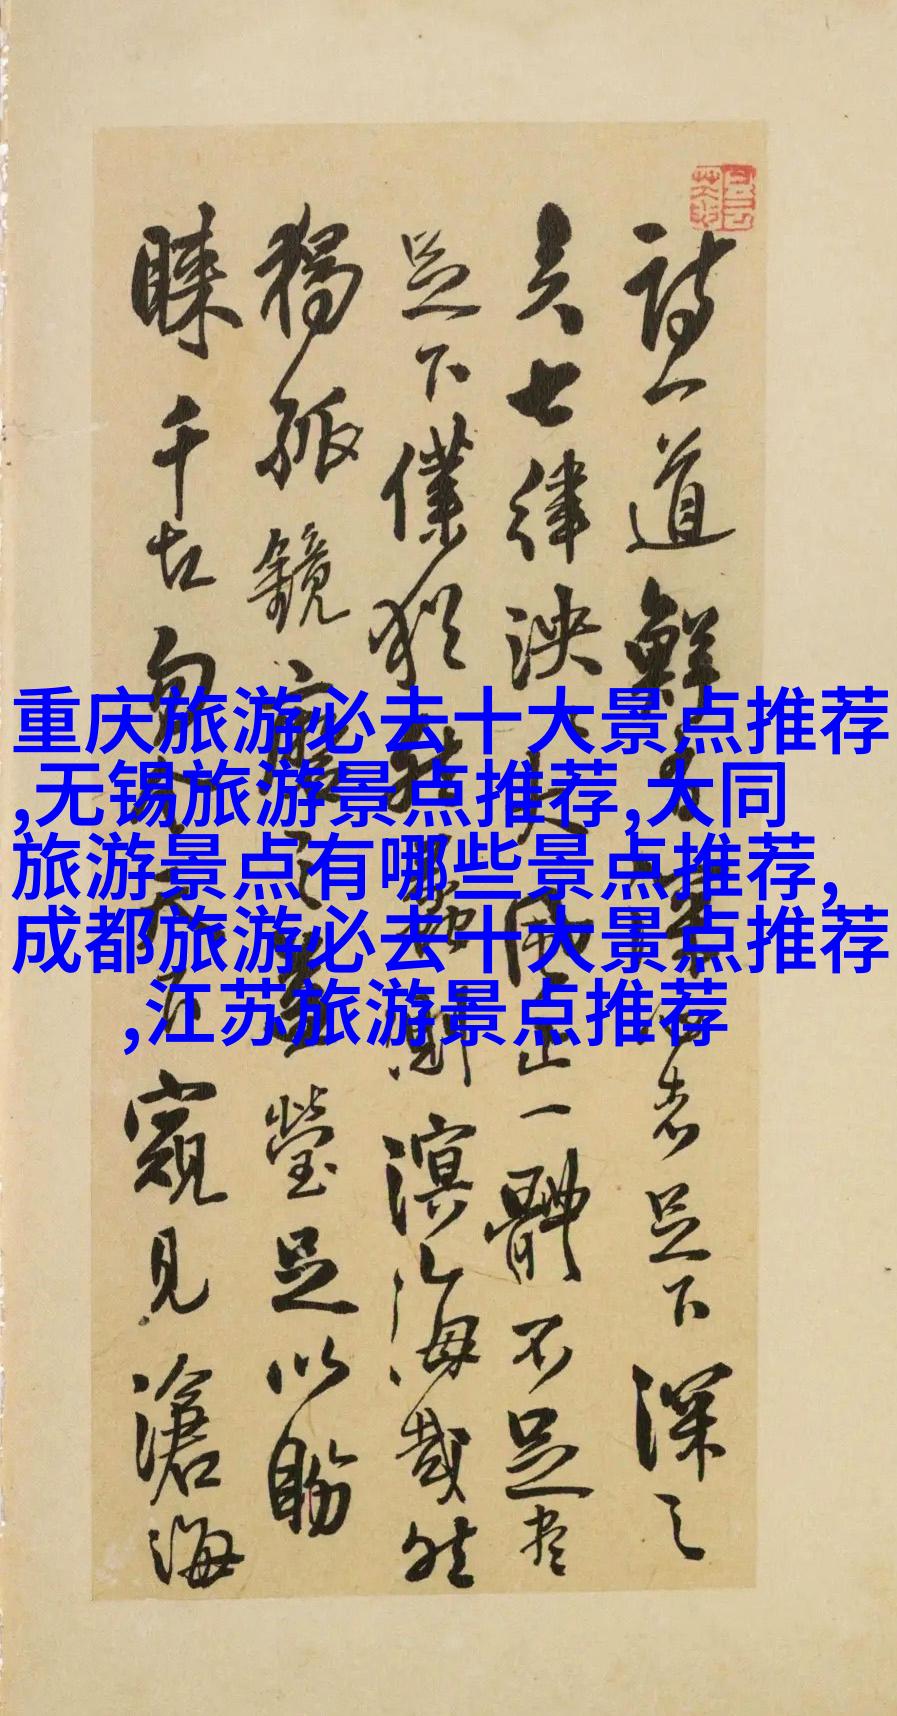 重庆旅游必去十大景点推荐
,无锡旅游景点推荐,大同
旅游景点有哪些景点推荐,
成都旅游必去十大景点推荐
,江苏旅游景点推荐
詩一道鮮者足下深之
矣七律泱大風一體不足盡
足下僕猶持蠡測溟海哉然
獨孤鏡之瑩足以盼
睞千古窺見滄海